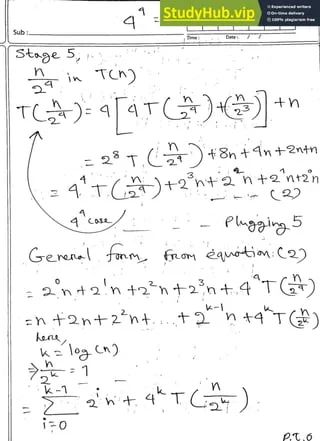 4^4 =
StudyHub.vip
Experienced writers
On-time delivery
100% plagiarism free
Sub :
Time : Date : / /
Stage 5,
n/2^4 in T(n)
T(n/2^4) = 4[4T(n/2^4)+(n/2^3)]+n
= 2^8 T(n/2^4)+8n+4n+2n+n
= 4^4 T(n/2^4)+2^3n+2^2n+2^1n+2^0n
--- (2)
4^4 case
Plugging 5
General form, from equation: (2)
= 2^0n+2^1n+2^2n+2^3n+4^4T(n/2^4)
= n+2n+2^2n+....+2^(k-1)n+4^kT(n/2^k)
here,
k = log(n)
⇒ n/2^k = 1
= ∑_(i=0)^(k-1) 2^i n + 4^k T(n/2^k)
P.T.O